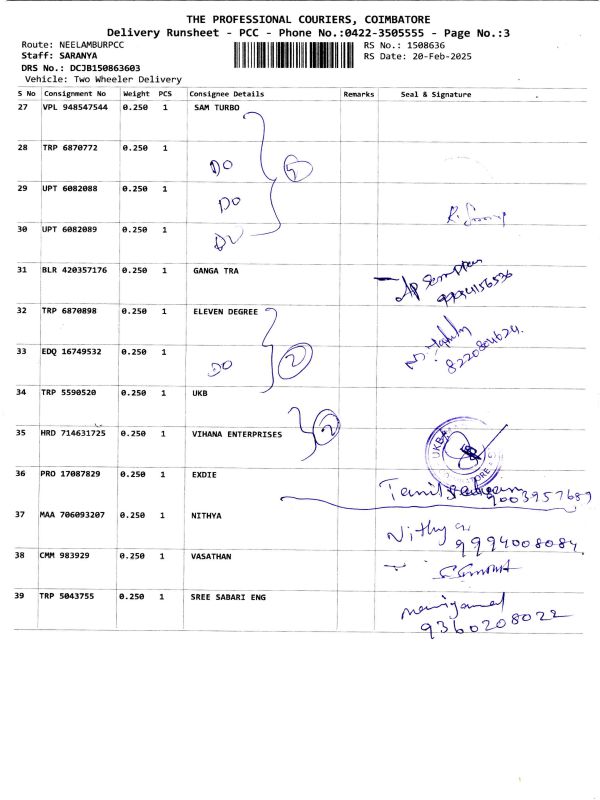 THE PROFESSIONAL COURIERS, COIMBATORE
Delivery Runsheet - PCC - Phone No.:0422-3505555 - Page No.:3
Route: NEELAMBURPCC RS No.: 1508636
Staff: SARANYA RS Date: 20-Feb-2025
DRS No.: DCJB150863603
Vehicle: Two Wheeler Delivery
S No Consignment No Weight PCS Consignee Details Remarks Seal & Signature
27 VPL 948547544 0.250 1 SAM TURBO
28 TRP 6870772 0.250 1
DO 4
29 UPT 6082088 0.250 1
DO
30 UPT 6082089 0.250 1
31 BLR 420357176 0.250 1 GANGA TRA
32 TRP 6870898 0.250 1 ELEVEN DEGREE
33 EDQ 16749532 0.250 1
DO 2
8220804624.
34 TRP 5590520 0.250 1 UKB
2
35 HRD 714631725 0.250 1 VIHANA ENTERPRISES
UKB
36 PRO 17087829 0.250 1 EXDIE
9003957689
37 MAA 706093207 0.250 1 NITHYA
Nithya
9994008084.
38 CMM 983929 0.250 1 VASATHAN
39 TRP 5043755 0.250 1 SREE SABARI ENG
9360208022